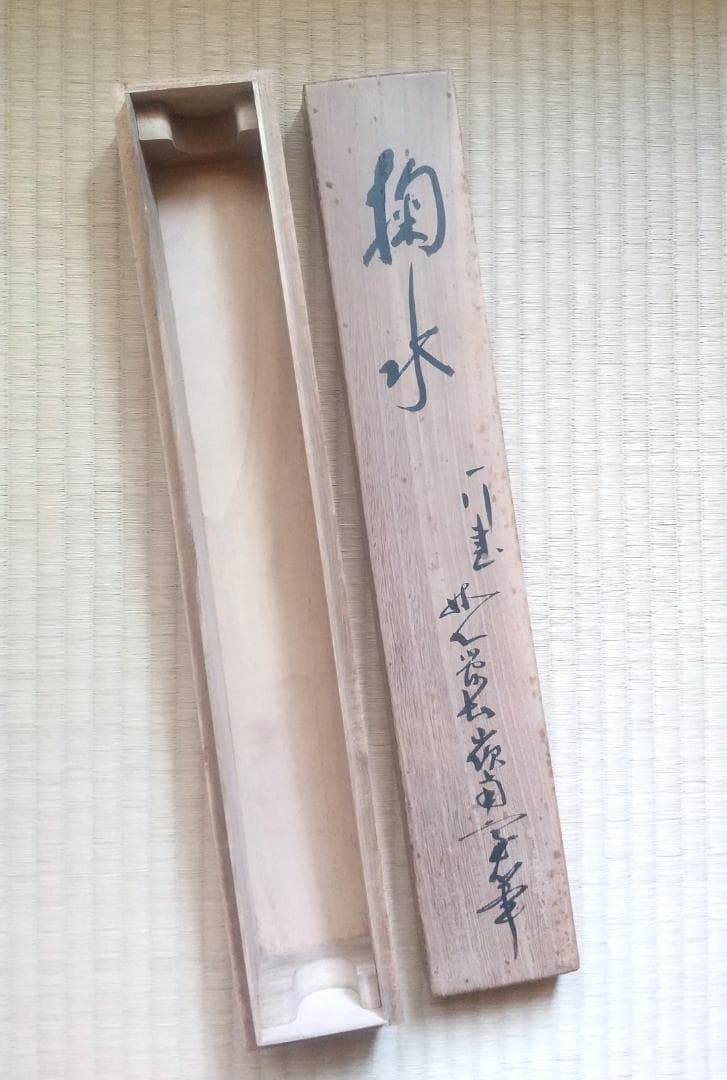 掬水
一行書 妙心管長嶺南筆